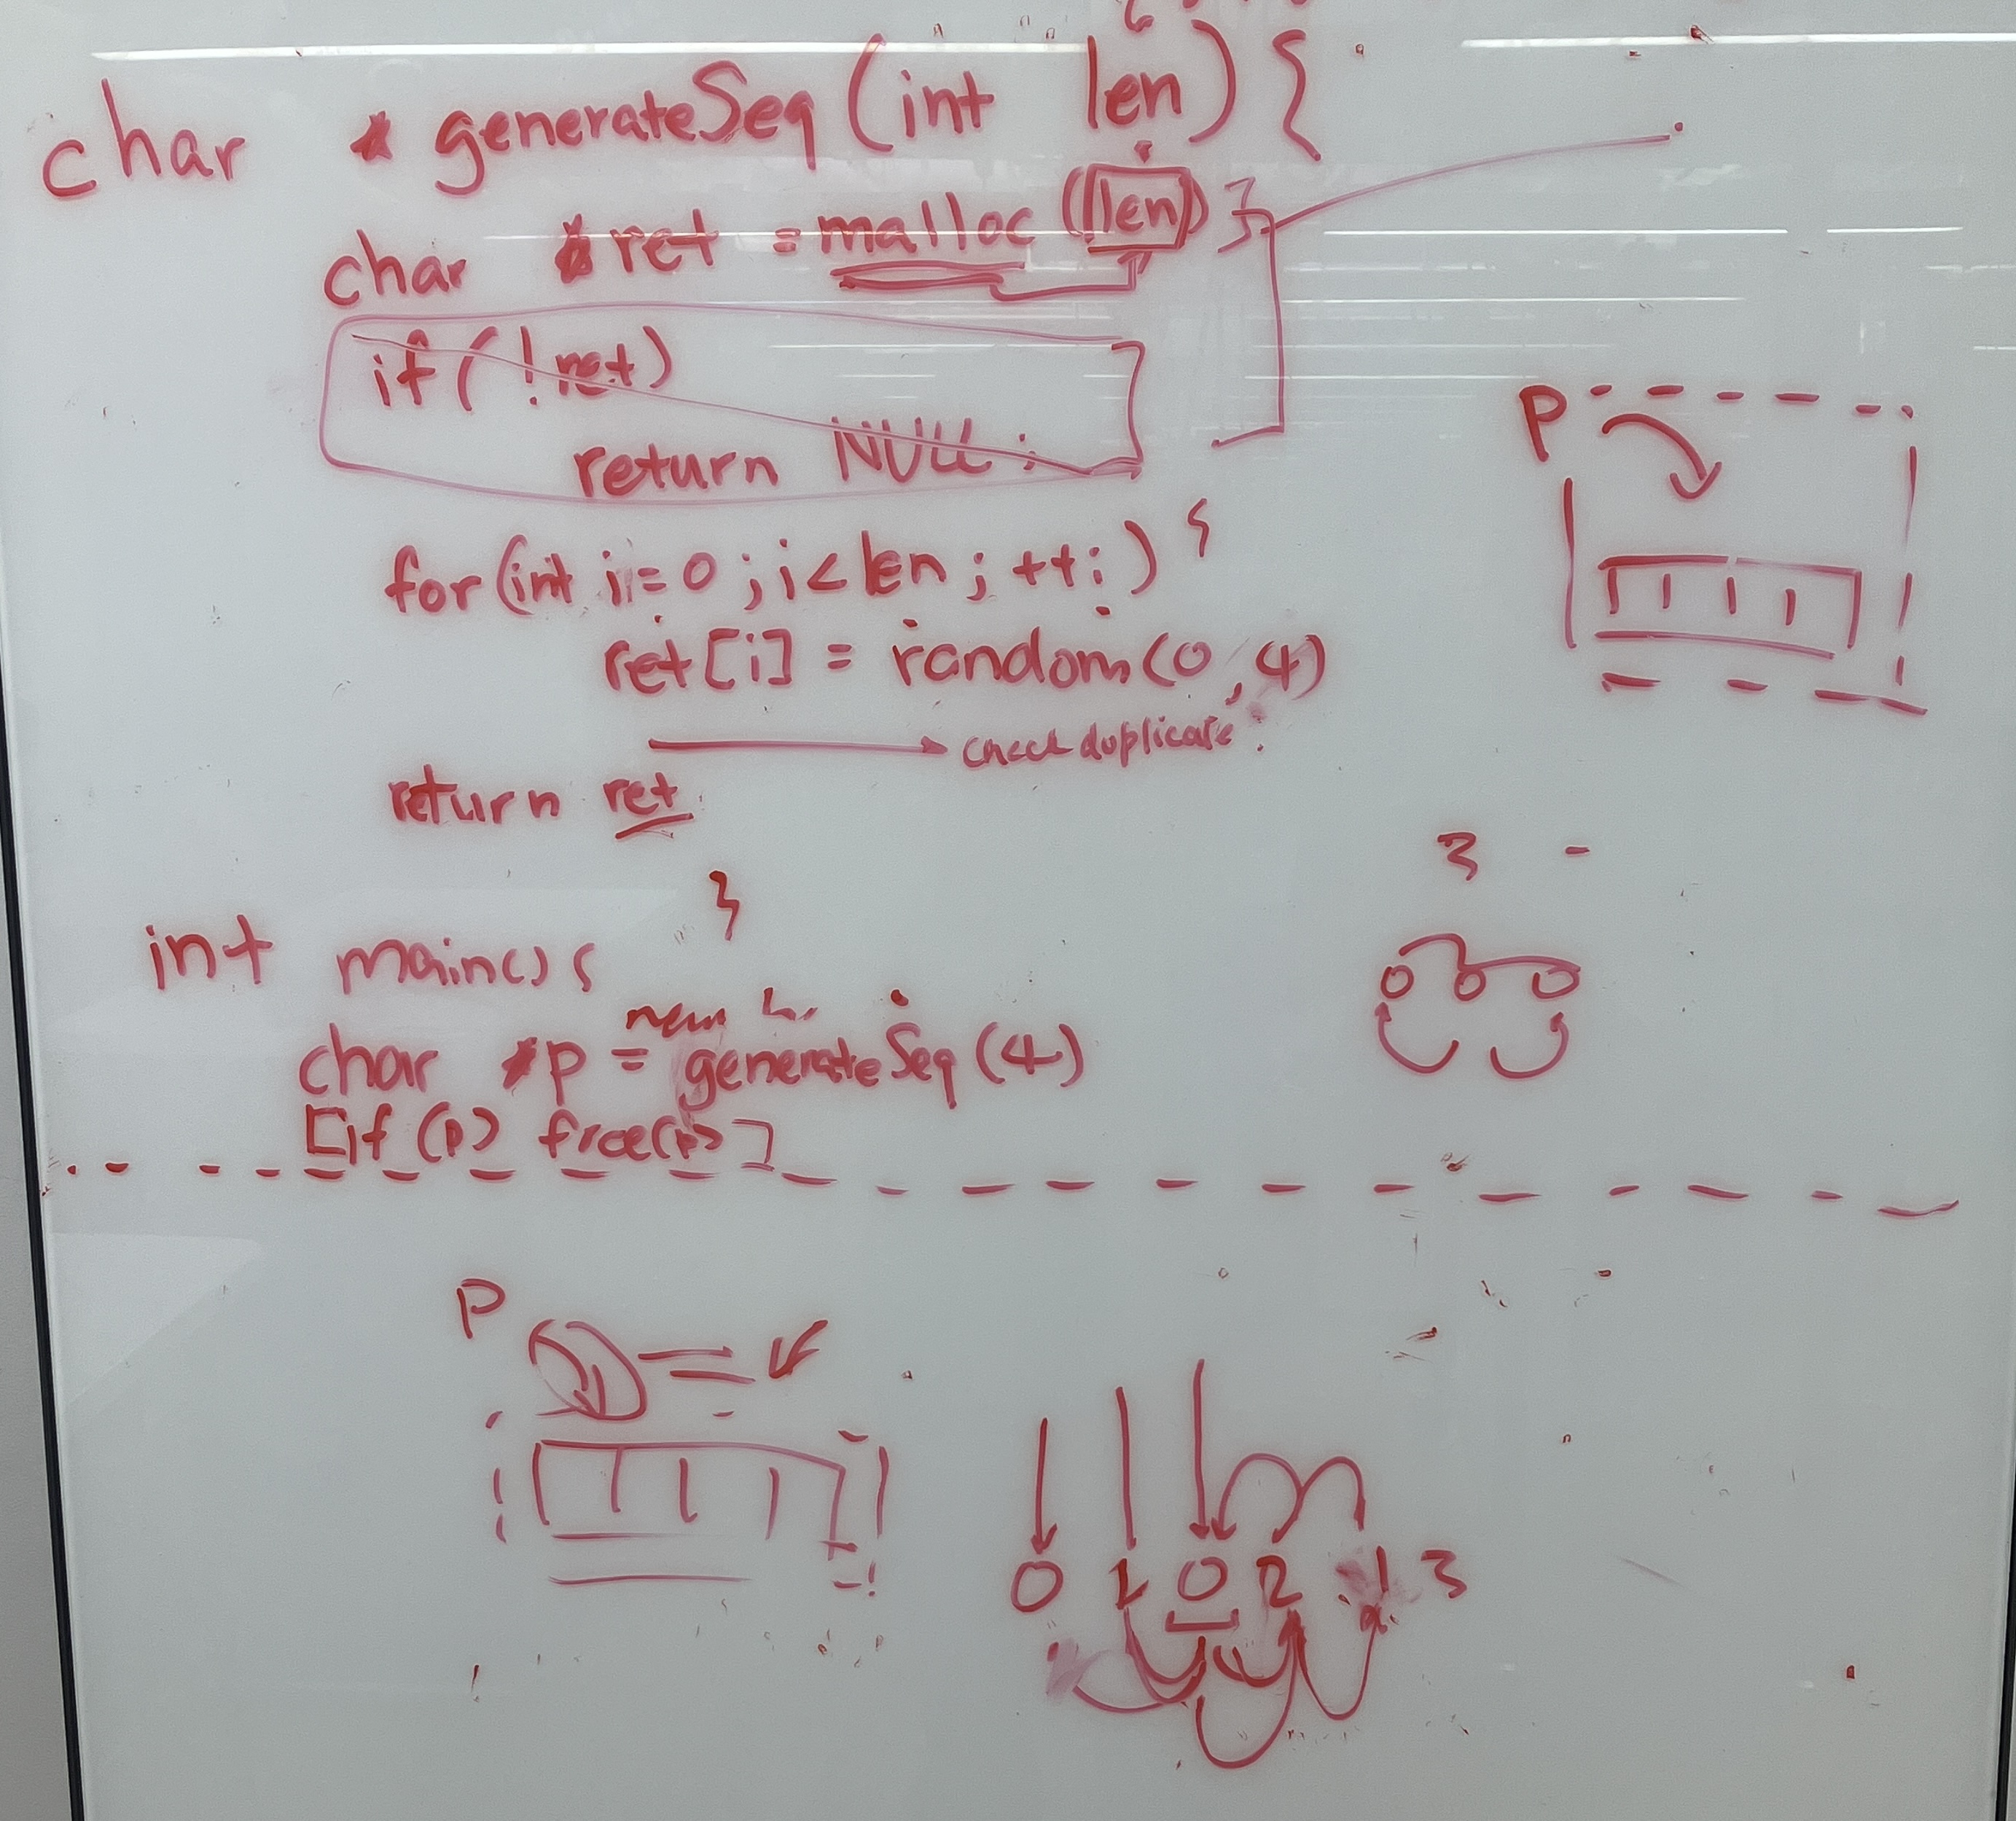 char * generateSeq (int len) {
char *ret = malloc (len)
if ( !ret)
return NULL ;
for (int i = 0 ; i < len ; ++i ) {
ret [i] = random (0, 4)
check duplicate
return ret
}
int main() {
new
char *p = generateSeq (4)
[if (p) free(p)]
P
3 -
0 0 0
P
0 1 0 2 1 3